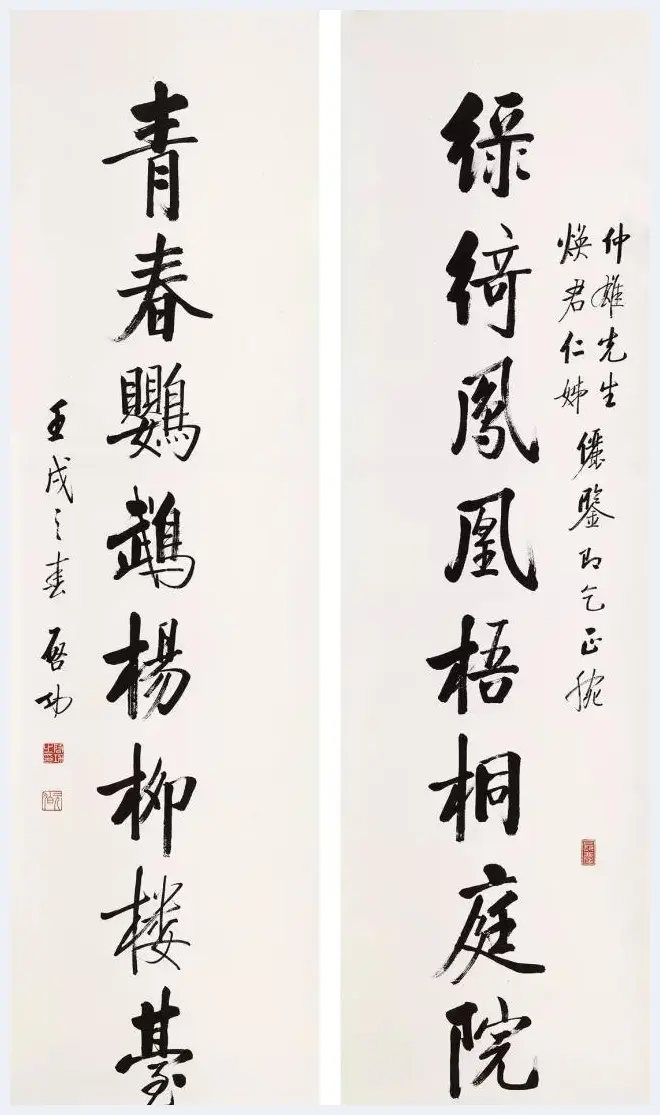 仲雄先生
焕君仁姊
儷鑒即乞正腕
緑綺鳳凰梧桐庭院
青春鸚鵡楊柳楼臺
壬戌之春 启功